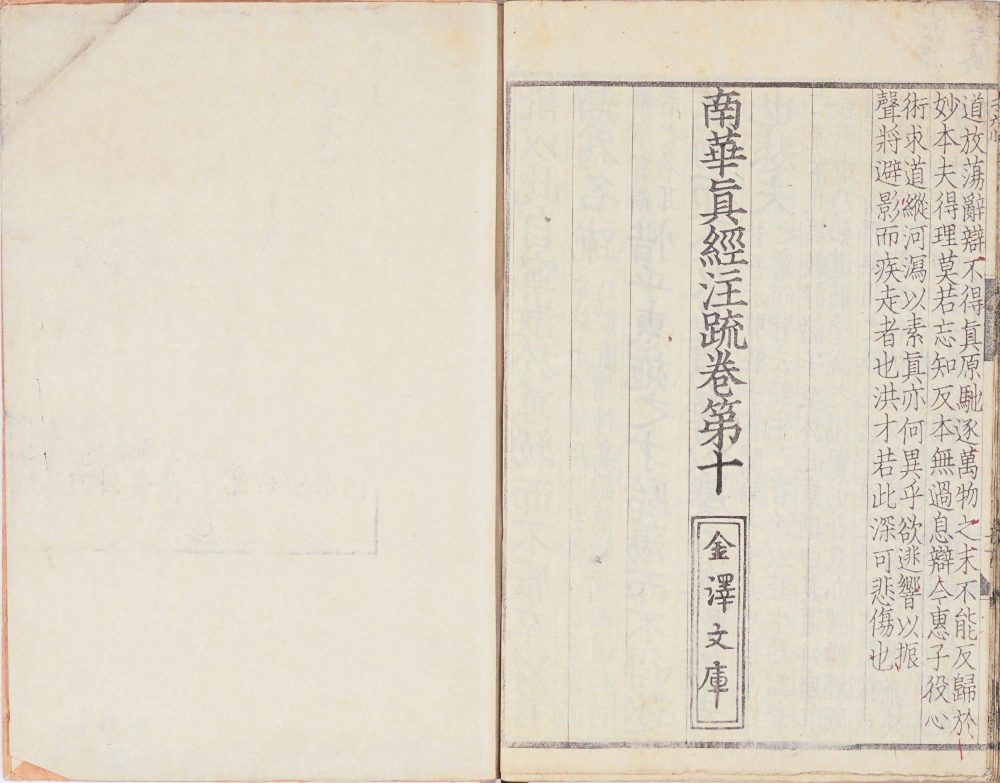 道放蕩辭辯不得眞原馳逐萬物之末不能反歸於
妙本夫得理莫若忘知反本無過息辯今惠子役心
術求道縱河瀉以素眞亦何異乎欲逃響以振
聲將避影而疾走者也洪才若此深可悲傷也
南華眞經注疏卷第十
金澤文庫